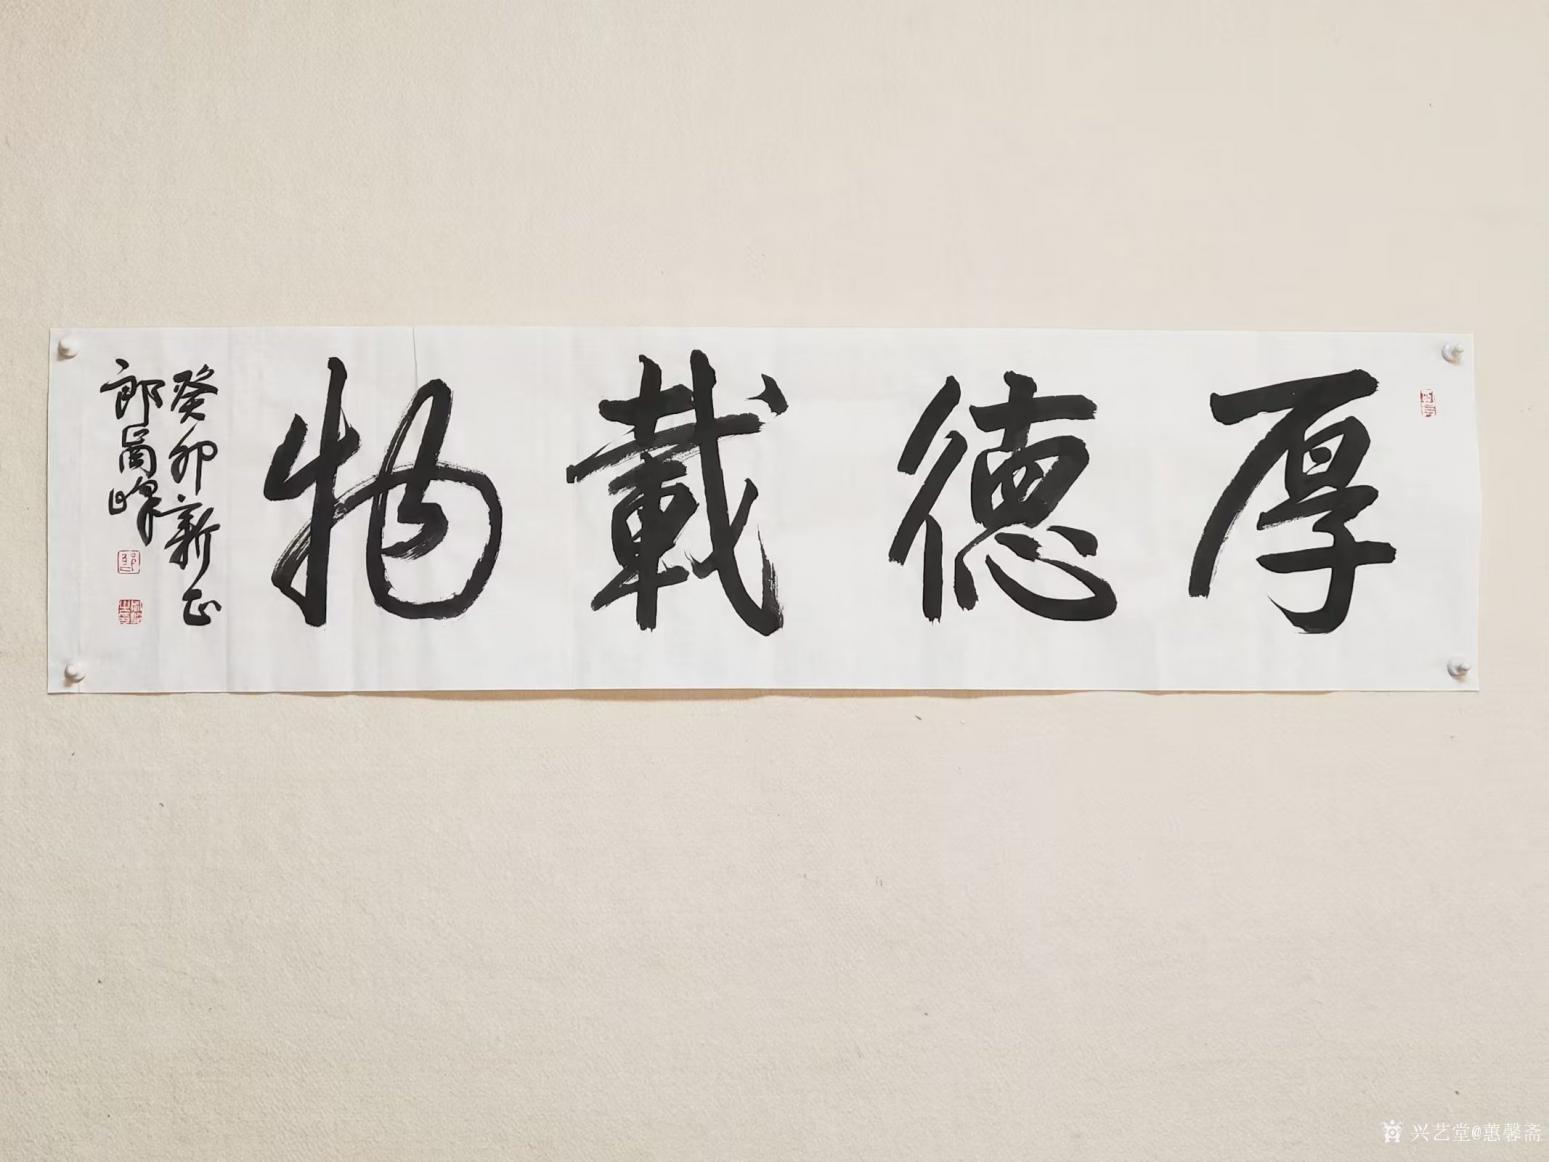 厚德載物
癸卯新正
郎
峰
兴艺堂@蕙馨斋